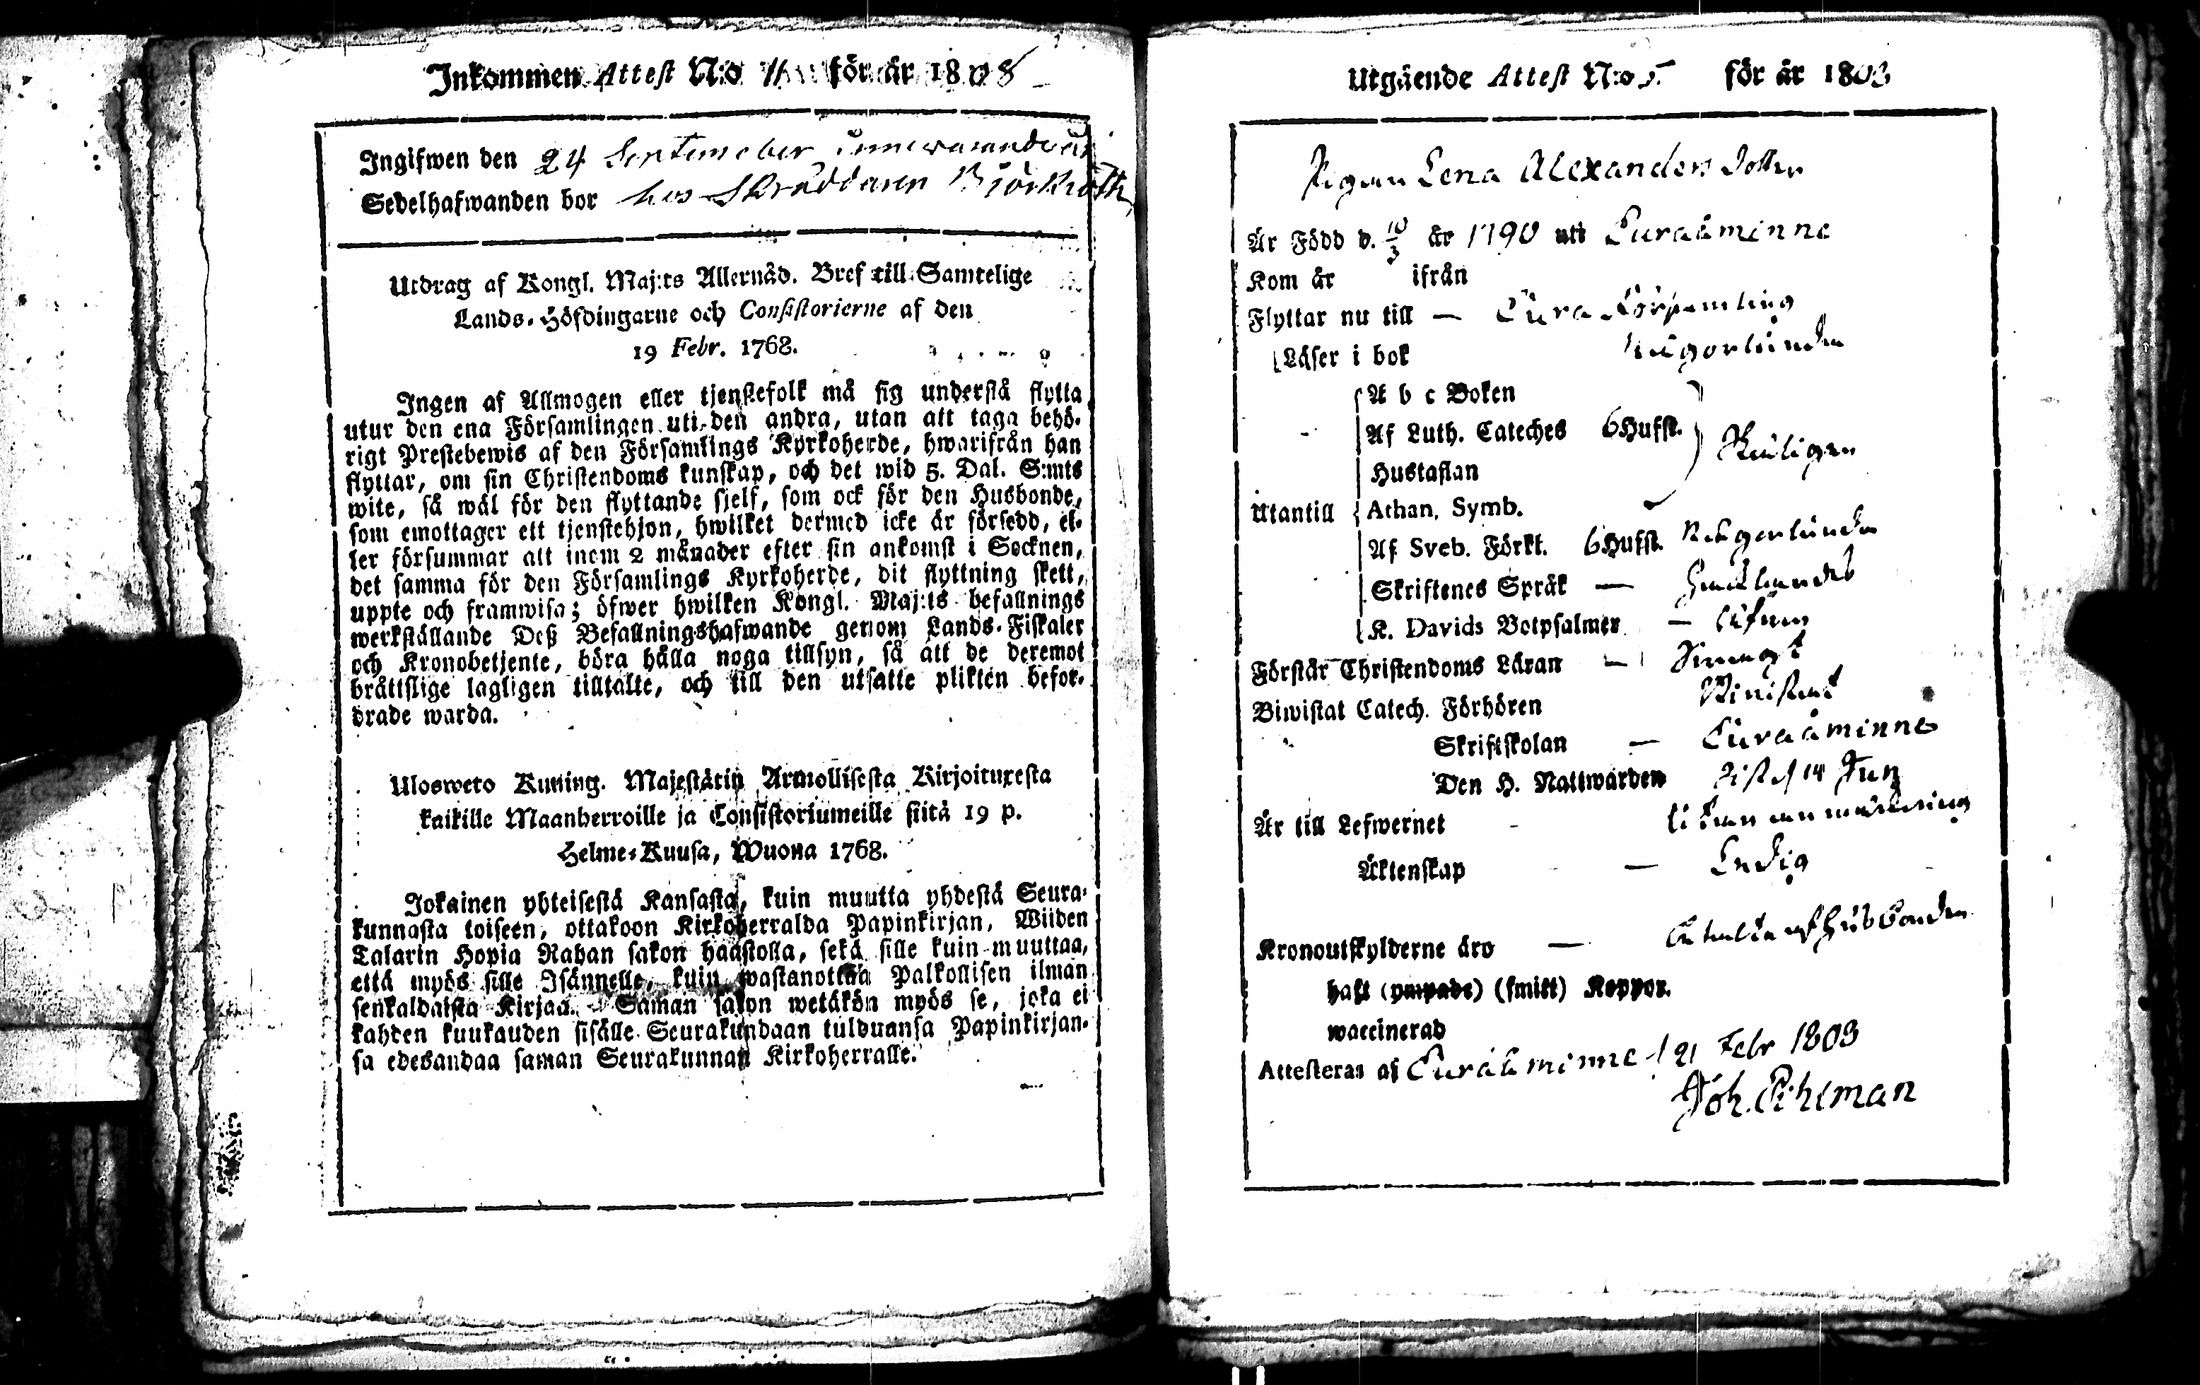 Inkommen Attest N:o 11 för år 1808
Ingifwen den 24 September innewarande år
Sedelhafwanden bor hos Skräddaren Björkroth
Utdrag af Kongl. Maj:ts Allernåd. Bref till Samtelige
Lands-Höfdingarne och Consistorierne af den
19 Febr. 1768.
Ingen af Allmogen eller tjenstefolk må sig understå flytta
utur den ena Församlingen uti den andra, utan att taga behö-
rigt Prestebewis af den Församlings Kyrkoherde, hwarifrån han
flyttar, om sin Christendoms kunskap, och det wid 5. Dal. S:mts
wite, så wäl för den flyttande sjelf, som ock för den Husbonde,
som emottager ett tjenstehjon, hwilket dermed icke är försedd, el-
ler försummar att inom 2 månader efter sin ankomst i Socknen,
det samma för den Församlings Kyrkoherde, dit flyttning skett,
uppte och framwisa; öfwer hwilken Kongl. Maj:ts befallnings
werkställande Deß Befallningshafwande genom Lands-Fiskaler
och Kronobetjente, böra hålla noga tillsyn, så att de deremot
bråttslige lagligen tilltalte, och till den utsatte plikten befor-
drade warda.
Ulosweto Kuning. Majestätin Armollisesta Kirjoituxesta
kaikille Maanherroille ja Consistoriumeille siitä 19 p.
Helme-Kuusa, Wuona 1768.
Jokainen yhteisestä Kansasta, kuin muutta yhdestä Seura-
kunnasta toiseen, ottakoon Kirkoherralda Papinkirjan, Wiiden
Talarin Hopia Rahan sakon haastolla, sekä sille kuin muuttaa,
että myös sille Isännelle, kuin wastanottaa Palkollisen ilman
senkaldaista Kirjaa. Saman sakon wetäkön myös se, joka ei
kahden kuukauden sisälle Seurakundaan tulduansa Papinkirjan-
sa edesandaa saman Seurakunnan Kirkoherralle.
Utgående Attest N:o 5. för år 1803
Pigan Lena Alexanders Dotter
Är Född d. 10/3 år 1790 uti Euraåminne
Kom år ifrån
Flyttar nu till — Eura Församling
Läser i bok någorlunda
A b c Boken
Af Luth. Cateches 6 Hufst.
Hustaflan
Utantill Athan. Symb.
Af Sveb. Förkl. 6 Hufst. Någorlunda
Skriftenes Språk —
K. Davids Botpsalmer —
Förstår Christendoms Läran —
Biwistat Catech. Förhören
Skriftskolan — Euraåminne
Den H. Nattwarden
Är till Lefwernet utan anmärkning
Äktenskap — Ledig
Kronoutskylderne äro — betalta af Husbonden
haft (ympade) (smitt) Koppor.
waccinerad
Attesteras af Euraåminne d 21 Febr 1803
Joh. Pihlman